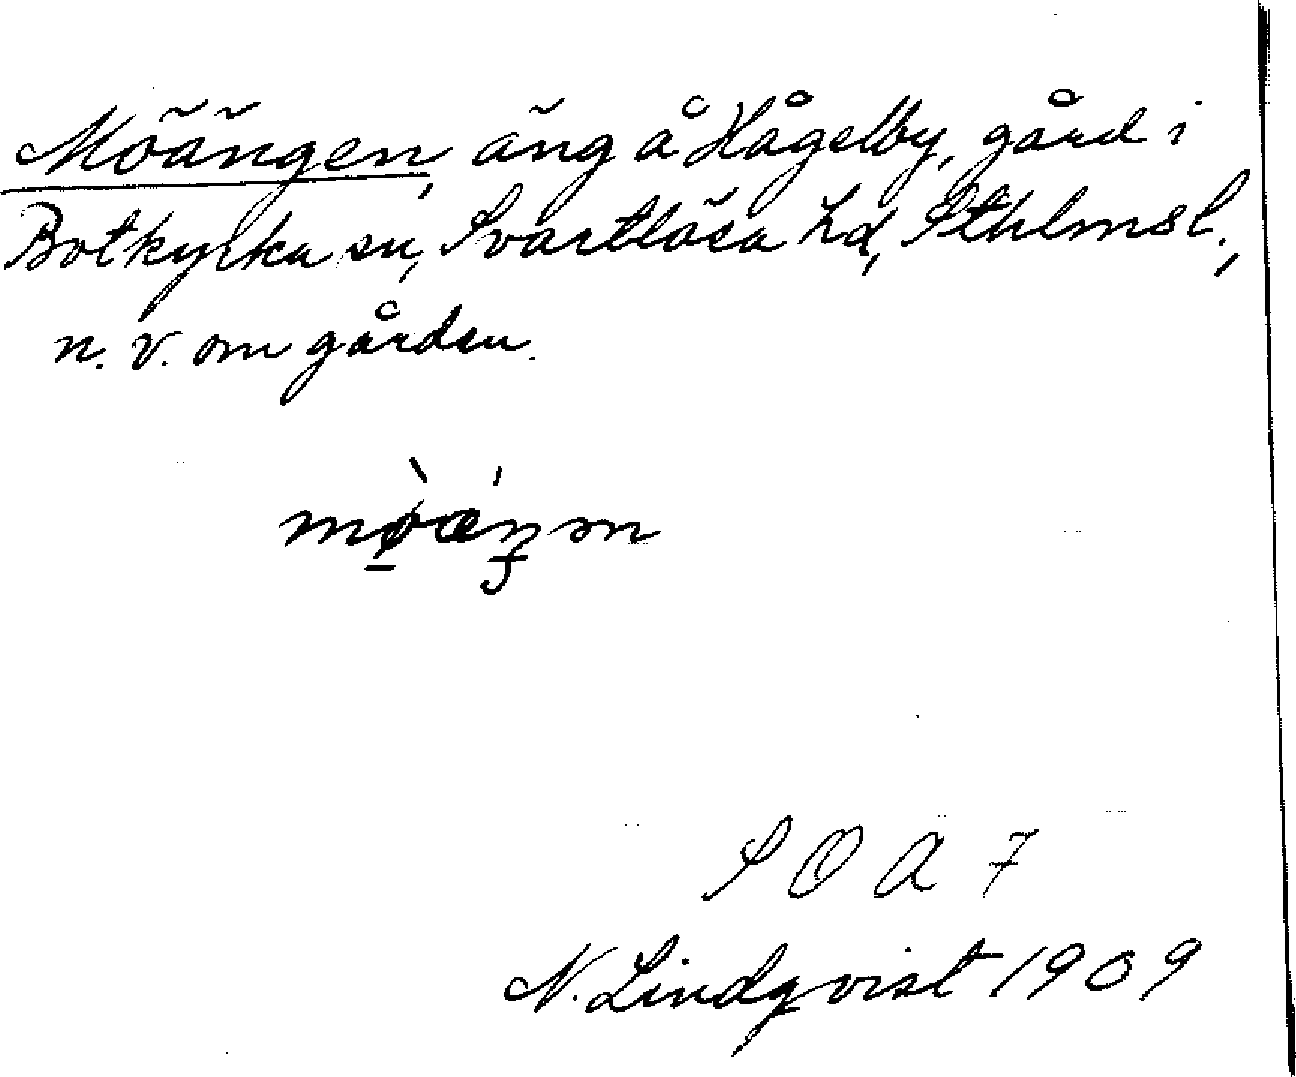 Möängen, äng å Hågelby, gård i
Botkyrka sn, Svartlösa hd, Sthlmsl.,
n. v. om gården.
SOA 7
N. Lindqvist 1909